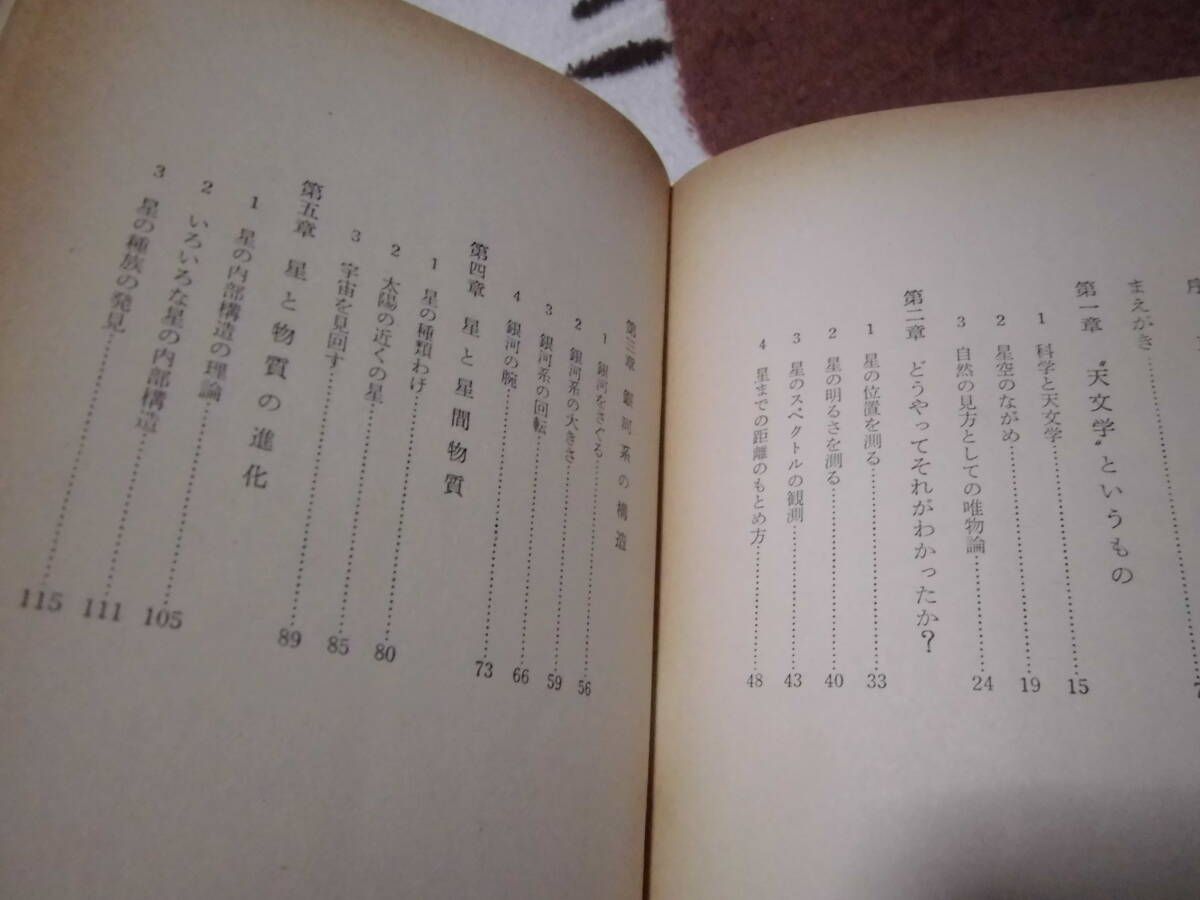 序
まえがき
第一章 〝天文学〟というもの
1 科学と天文学 15
2 星空のながめ 19
3 自然の見方としての唯物論 24
第二章 どうやってそれがわかったか？
1 星の位置を測る 33
2 星の明るさを測る 40
3 星のスペクトルの観測 43
4 星までの距離のもとめ方 48
第三章 銀河系の構造
1 銀河をさぐる 56
2 銀河系の大きさ 59
3 銀河系の回転 66
4 銀河の腕 73
第四章 星と星間物質
1 星の種類わけ 80
2 太陽の近くの星 85
3 宇宙を見回す 89
第五章 星と物質の進化
1 星の内部構造の理論 105
2 いろいろな星の内部構造 111
3 星の種族の発見 115